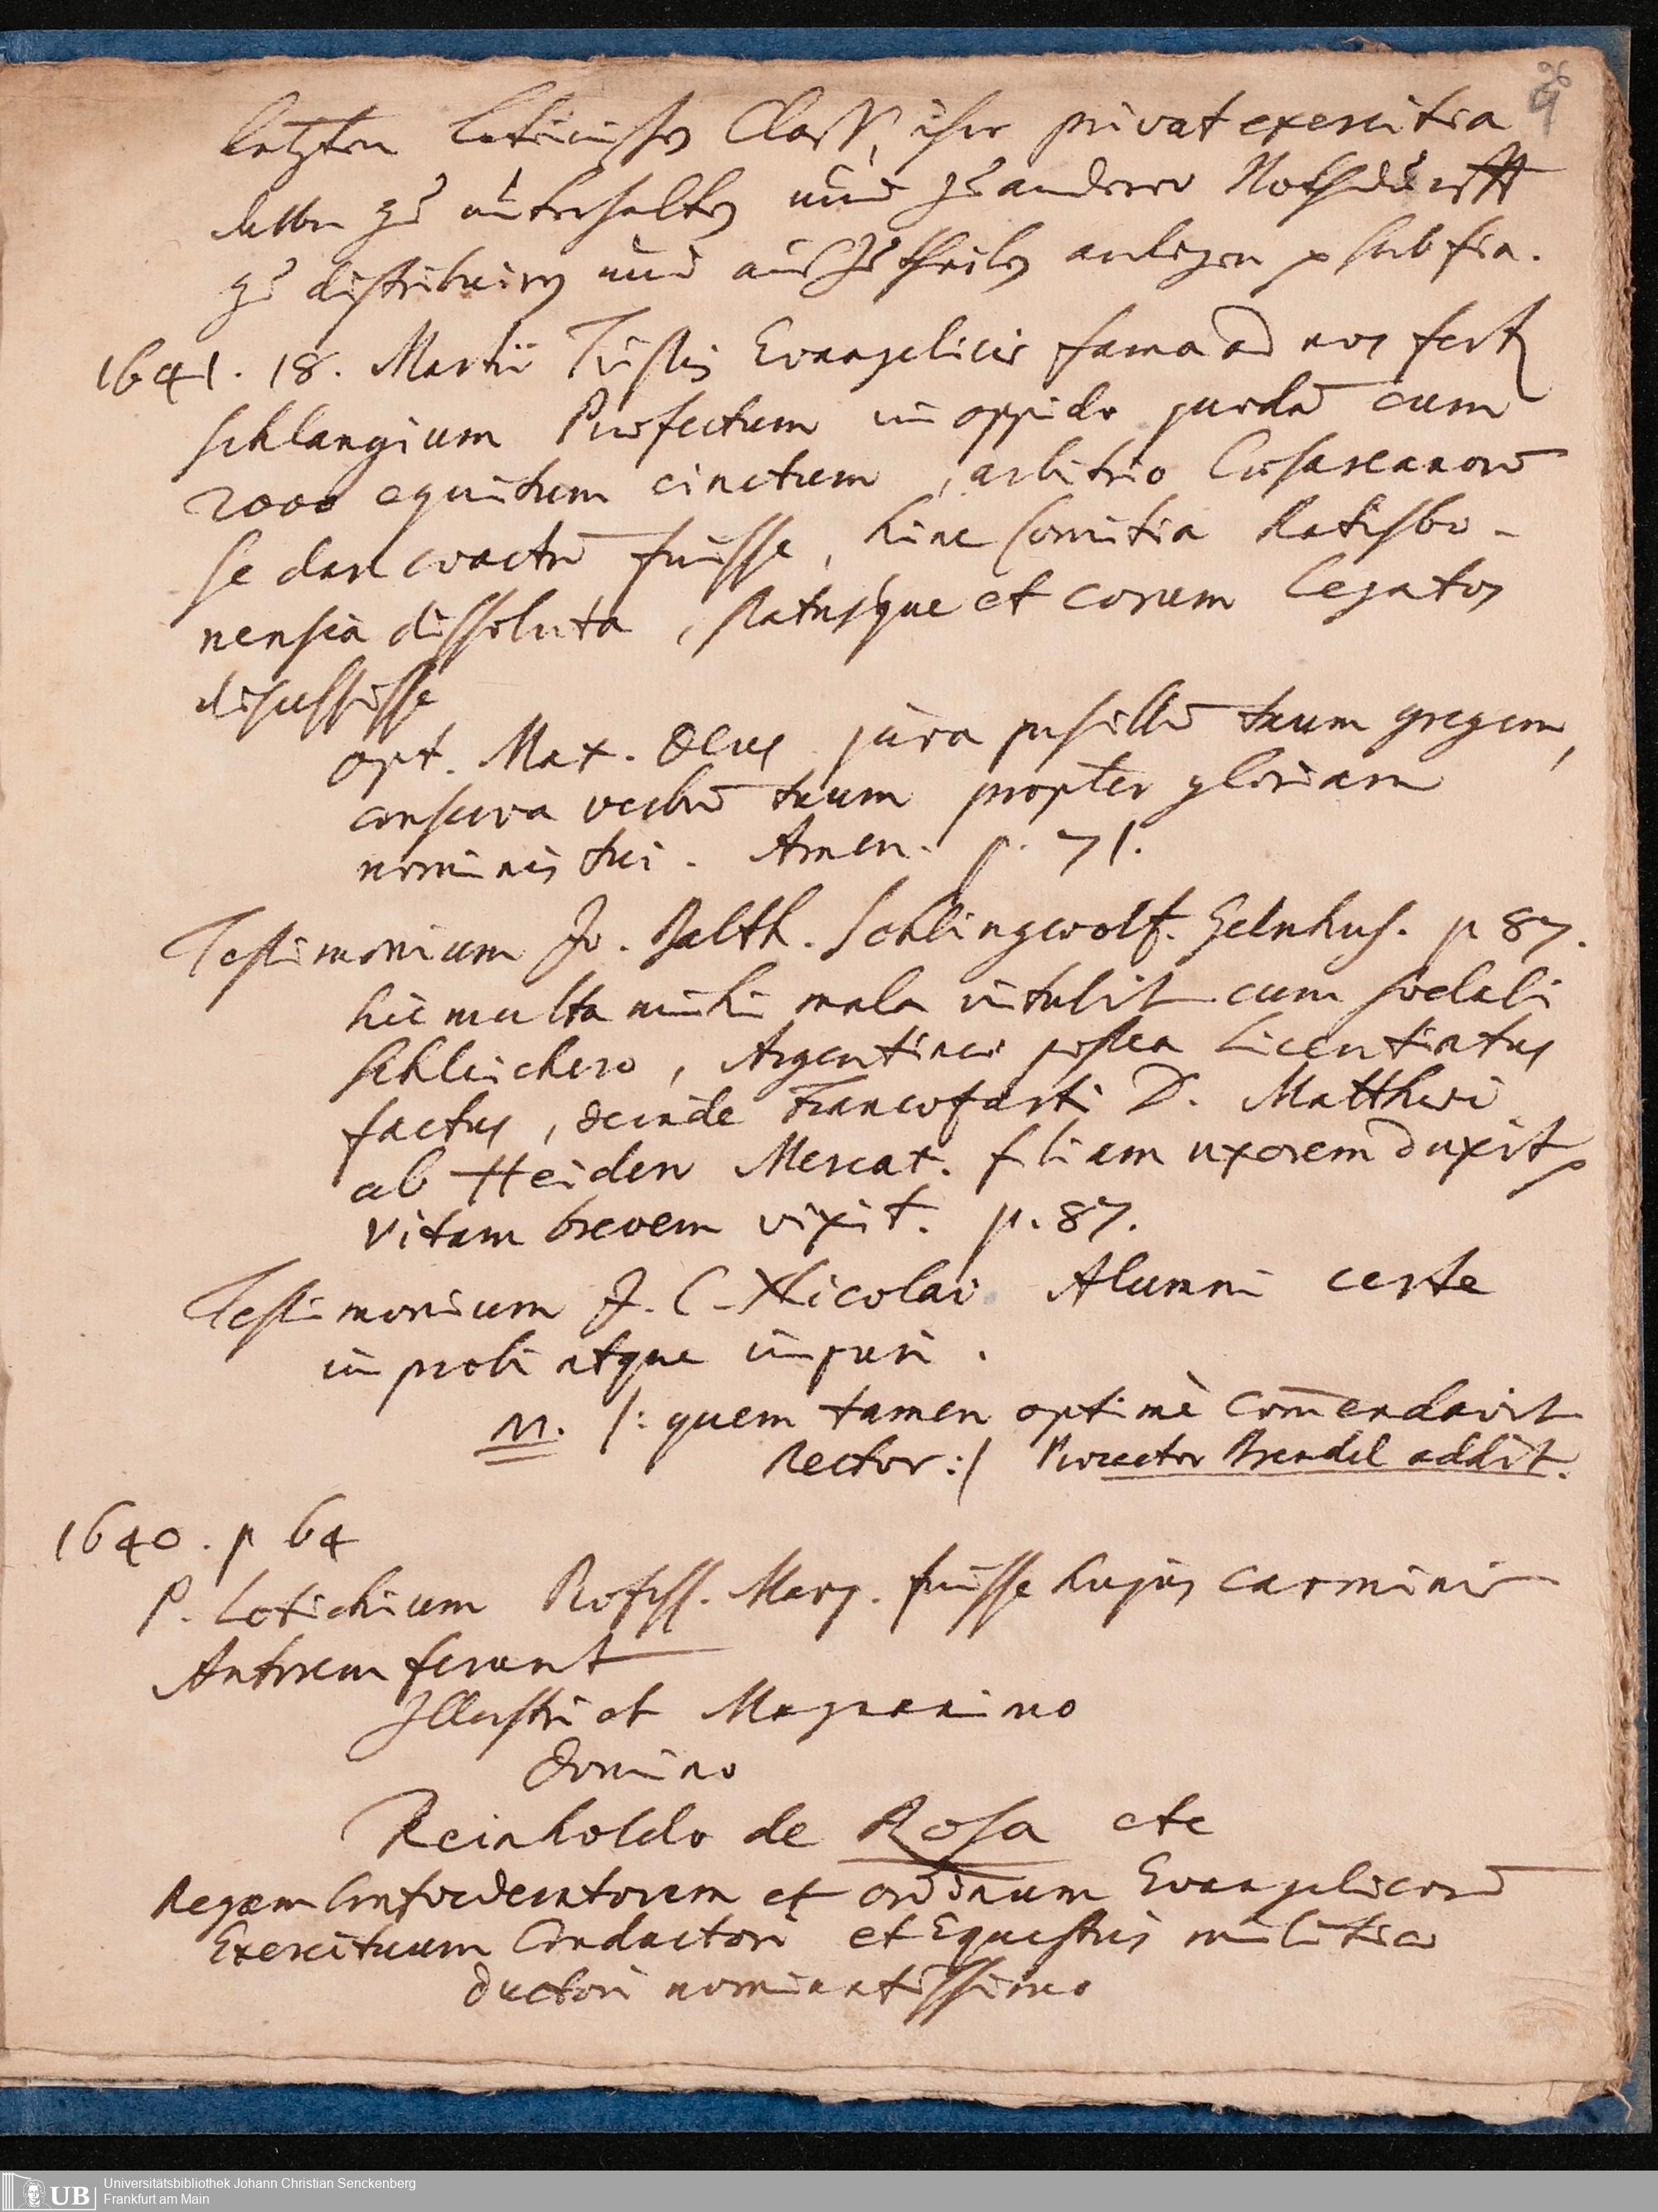 letzten lateinischen Class, ihre privat exercitia
zu unterhalten und zu anderer Nothdurfft
zu distribuiren und auszutheilen
1641. 18. Martii Tristis Evangelicis fama ad nos fert
Schlangium Praefectum in oppido quodā cum
2000 equitum cinctum, arbitrio Caesareanorū
se dare coactū fuisse, hinc Comitia Ratisbo-
nensia dissoluta, Statusque et eorum legatos
discessisse
opt. Max. Deus juva pusillū tuum gregem,
conserva verbū tuum propter gloriam
nominis tui. Amen. p. 71.
Testimonium Jo. Balth. Schlingwolf. Gelnhus. p 87.
hic multa mihi mala intulit cum sodali
Schleichero, Argentinae postea Licentiatus
factus, deinde Francofurti D. Matthaei
ab Heiden Mercat. filiam uxorem duxit
vitam brevem vixit. p. 87.
Testimonium J. C. Nicolai Alumni certe
improbi atque impuri.
/: quem tamen optimè com̄endavit
Rector :/ Prorector Brendel addit.
1640. p 64
P. Lotichium Profess. Marp. fuisse hujus carminis
Autorem ferunt
Illustri et Magnanimo
Domino
Reinholdo de Rosa etc
Regum Confoederatorum et ordinum Evangelicorū
Exercituum Conductori et Equestris militiae
ductori nominatissimo
Universitätsbibliothek Johann Christian Senckenberg
Frankfurt am Main
UB